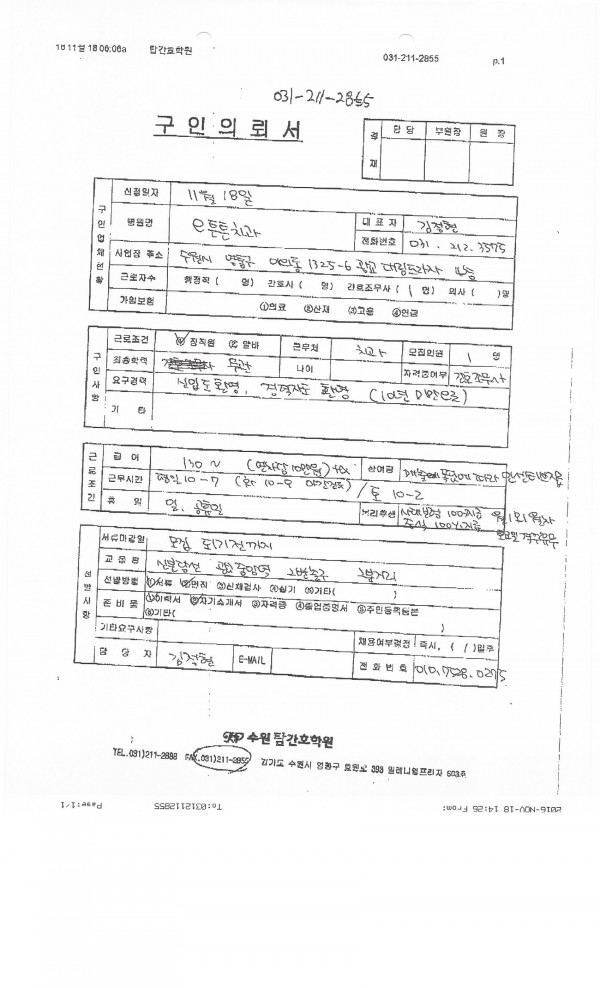 16 11월 18 06:06a 탑간호학원 031-211-2855 p.1
031-211-2855
구 인 의 뢰 서
결 재 담 당 부원장 원 장
구인업체현황
신청일자 11월 18일
병원명 e튼튼치과 대 표 자 김정현
전화번호 031. 212. 3575
사업장 주소 수원시 영통구 이의동 1325-6 광교 대림프라자
근로자수 행정직 ( 명) 간호사 ( 명) 간호조무사 ( 1 명) 의사 ( )명
가입보험 ①의료 ②산재 ③고용 ④연금
구인사항
근로조건 ① 정직원 ② 알바 근무처 치과 모집인원 1 명
최종학력 무관 나이 자격증여부 간호조무사
요구경력 신입도 환영, 경력자도 환영 (10년 미만으로)
기 타
근로조건
급 여 130 ~ 상여금
근무시간 평일 10-7 (화 10-9 야간진료) / 토 10-2
휴 일 일, 공휴일 복리후생 100%지급 월1회 월차
중식 100%지급
선발사항
서류마감일 모집 되기전까지
교 통 편 신분당선 광교중앙역
선발방법 ①서류 ②면직 ③신체검사 ④실기 ⑤기타( )
준 비 물 ①이력서 ②자기소개서 ③자격증 ④졸업증명서 ⑤주민등록등본
⑥기타( )
기타요구사항 채용여부결정 즉시, ( / )일후
담 당 자 김정현 E-MAIL 전 화 번 호 010.7528.0275
수원 탑간호학원
TEL.031)211-2888 FAX.031)211-2855 경기도 수원시 영통구 효원로 393 밀레니엄프라자 603호
2016-NOV-18 14:26 From: To:0312112855 Page:1/1